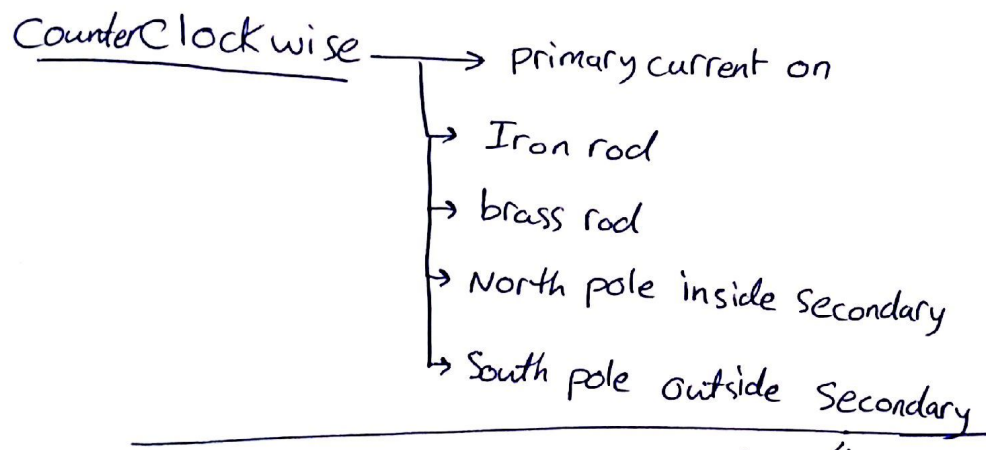 CounterClockwise → primary current on
→ Iron rod
→ brass rod
→ North pole inside secondary
→ South pole outside Secondary